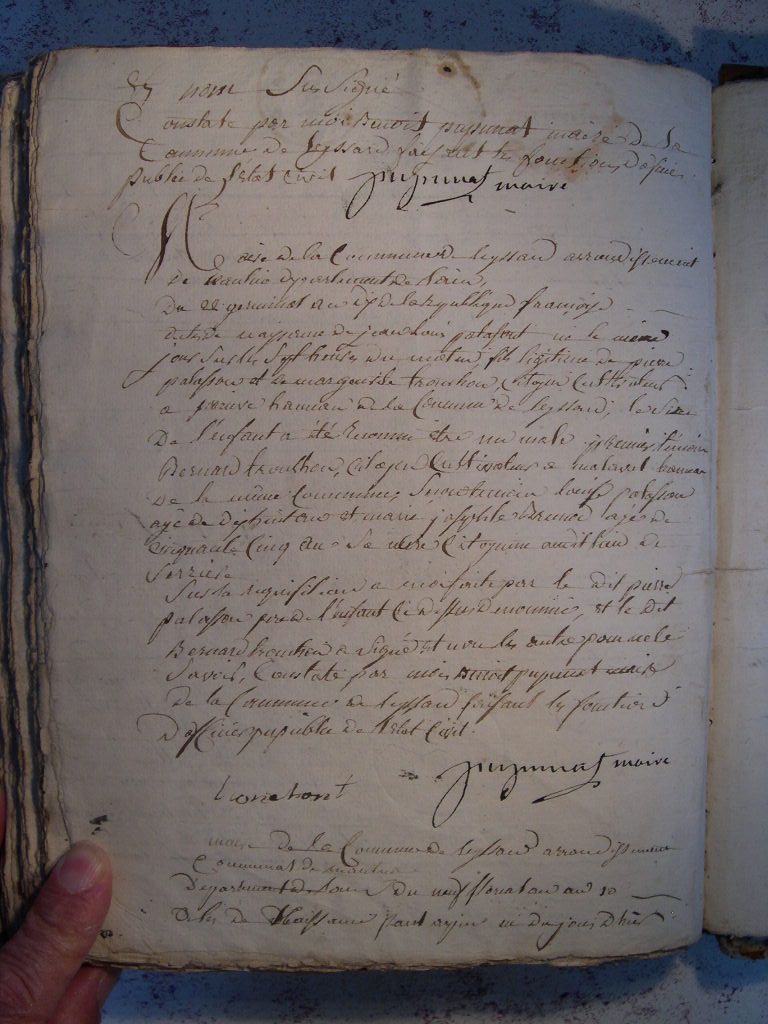 nom Sus Signé
Constate par moi Benoit pupunat maire de La
Commune de Leyssard faisant les fonctions d'oficie
publie de l'etat Civil pupunat maire
Mairie de la Commune de Leyssard arrondissement
de Nantua departement de L'ain,
Du 22 germinal an IX de la republique françoise
acte de naissance de jean Louis palasont né le même
jour sur les Sept heures du matin, fils legitime de pierre
palasson et de marguerite tronchon Citoyen Cultivateur
a hamau de la Commune de Leyssard, le Sexe
De l'enfant a été Reconnu être un male premier temoin
Bernard tronchon, Citoyen Cultivateur a hamau
de la même Commune, Second temoin Louise palasson
agé de et marie josephte agé de
Cinquante Cinq an Citoyenne audit lieu de
Serriere
Sur la requisition a moi faite par le dit pierre
palasson pere de l'enfant Ci dessus denommé, et le dit
Bernard tronchon a Signé et non les autre pour ne le
Savoir, Constate par moi Benoit pupunat maire
de la Commune de Leyssard faisant les fonction d
D'officier pupublie de l'etat Civil.
tronchont pupunat maire
maire de La Commune de Leyssard arrondissement
Communal de nantua
Departement de Lain Du neuf an 10
acte de Naissance né du jour d'hier